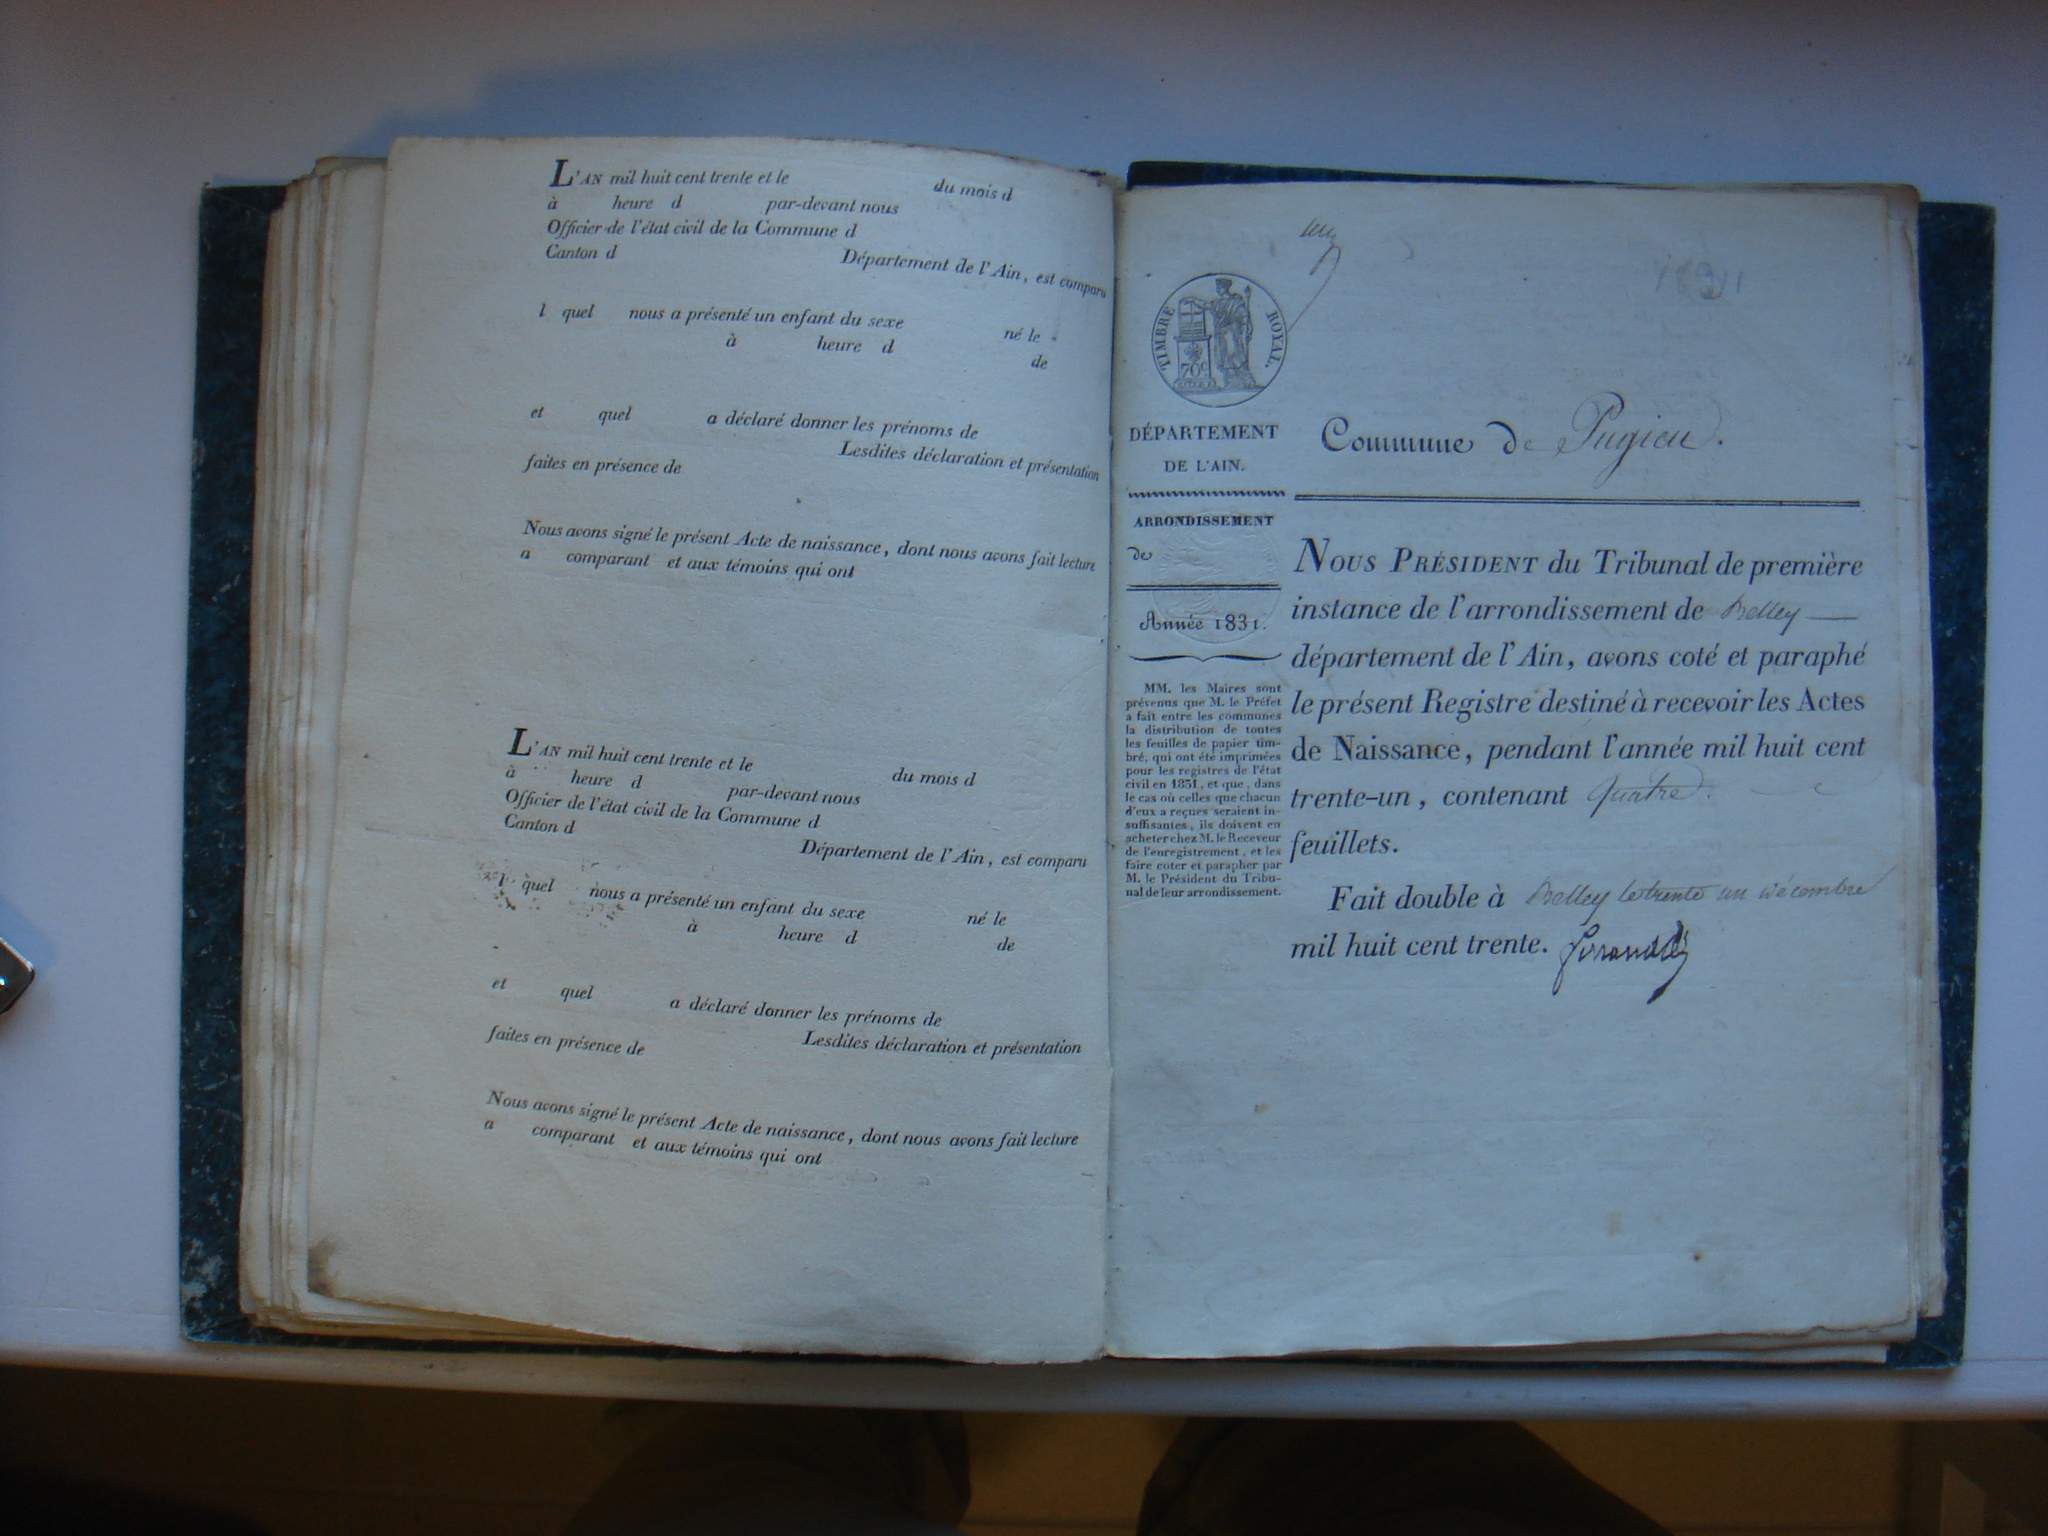 L'AN mil huit cent trente et le du mois d
à heure d par-devant nous
Officier de l'état civil de la Commune d
Canton d Département de l'Ain, est comparu
l quel nous a présenté un enfant du sexe né le
à heure d de
et quel a déclaré donner les prénoms de
Lesdites déclaration et présentation
faites en présence de
Nous avons signé le présent Acte de naissance, dont nous avons fait lecture
a comparant et aux témoins qui ont
L'AN mil huit cent trente et le du mois d
à heure d par-devant nous
Officier de l'état civil de la Commune d
Canton d Département de l'Ain, est comparu
l quel nous a présenté un enfant du sexe né le
à heure d de
et quel a déclaré donner les prénoms de
Lesdites déclaration et présentation
faites en présence de
Nous avons signé le présent Acte de naissance, dont nous avons fait lecture
a comparant et aux témoins qui ont
1831
TIMBRE ROYAL.
70c
DÉPARTEMENT
DE L'AIN.
ARRONDISSEMENT
de
Année 1831.
MM. les Maires sont
prévenus que M. le Préfet
a fait entre les communes
la distribution de toutes
les feuilles de papier tim-
bré, qui ont été imprimées
pour les registres de l'état
civil en 1831, et que, dans
le cas où celles que chacun
d'eux a reçues seraient in-
suffisantes, ils doivent en
acheter chez M. le Receveur
de l'enregistrement, et les
faire coter et parapher par
M. le Président du Tribu-
nal de leur arrondissement.
Commune de Pugieu.
NOUS PRÉSIDENT du Tribunal de première
instance de l'arrondissement de Belley
département de l'Ain, avons coté et paraphé
le présent Registre destiné à recevoir les Actes
de Naissance, pendant l'année mil huit cent
trente-un, contenant quatre
feuillets.
Fait double à Belley le trente un décembre
mil huit cent trente.